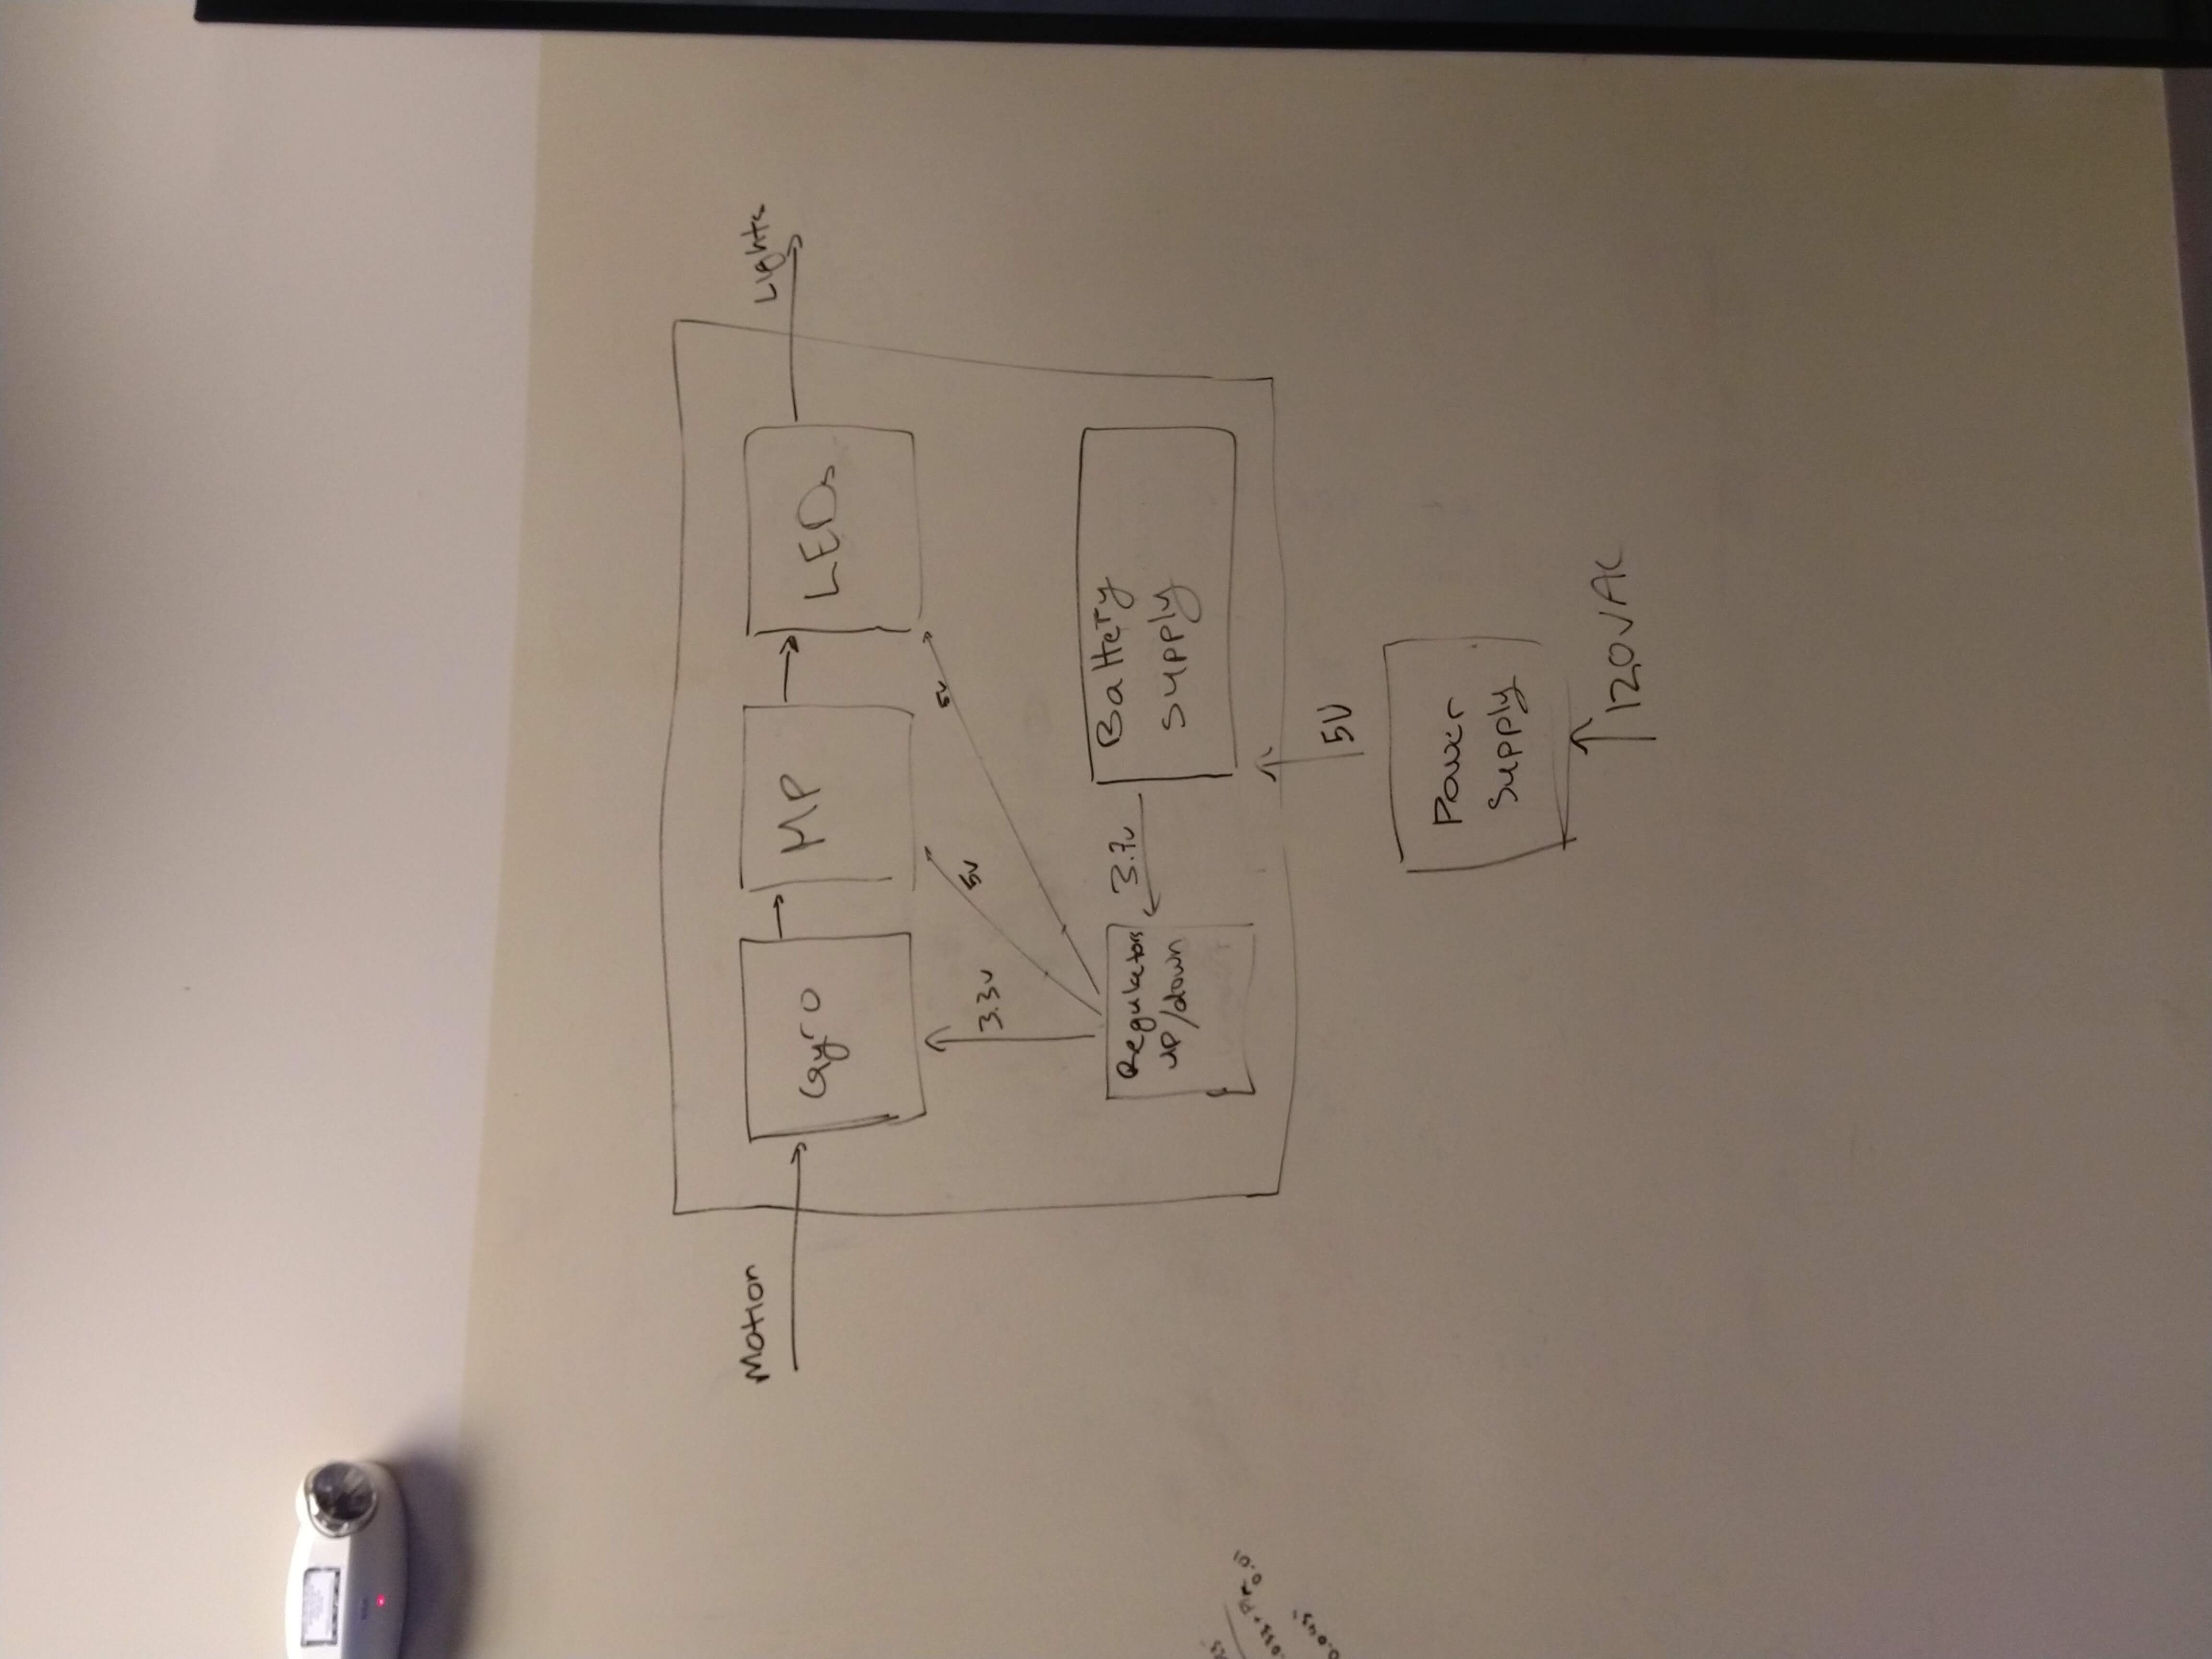 Motion
Lights
Gyro
MP
LEDs
3.3v
5v
5v
Regulators
up/down
3.7v
Battery
supply
5V
Power
Supply
120VAC
0.01
0.043